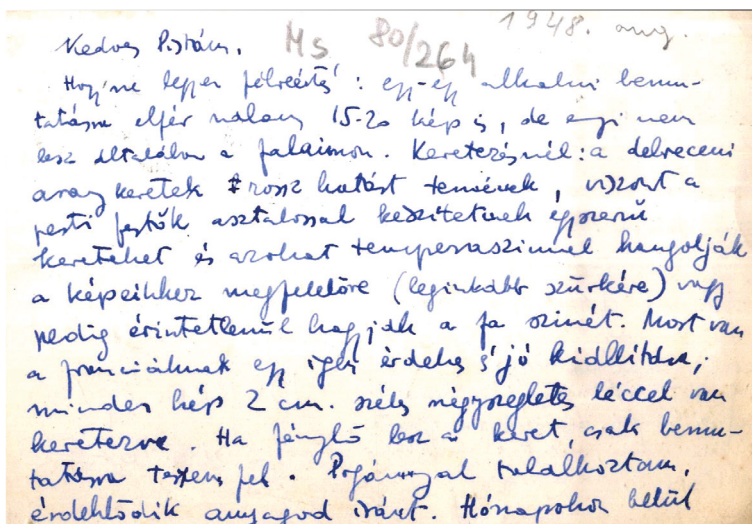 1948. aug.
Ms 80/264
Kedves Pistám,
Hogy ne legyen félreértés: egy-egy alkalmi bemu-
tatásra elfér nálam 15-20 kép is, de ennyi nem
lesz általában a falaimon. Keretezésnél: a debreceni
arany keretek rossz hatást tennének, viszont a
pesti festők asztalossal készítetnek egyszerű
kereteket és azokat temperaszínnel hangolják
a képeikhez megfelelőre (leginkább szürkére) vagy
pedig érintetlenül hagyják a fa szinét. Most van
a franciáknak egy igen érdekes s jó kiállítása;
minden kép 2 cm. széles négyszegletes léccel van
keretezve. Ha fénylő lesz a keret, csak bemu-
tatásra teszem fel. Pogánnyal találkoztam,
érdeklődik anyagod iránt. Hónapokon belül